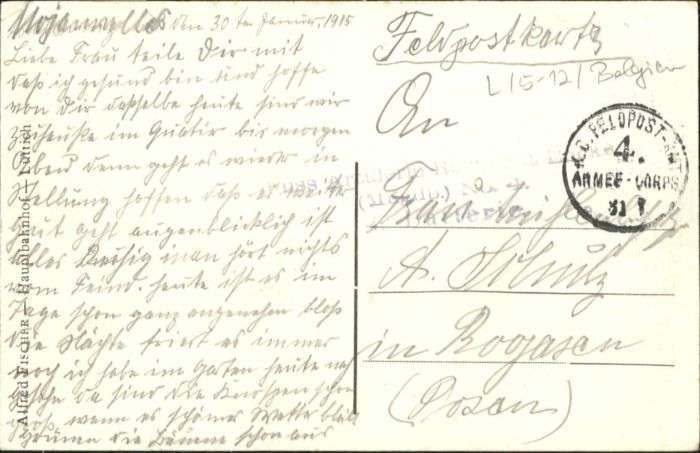 den 30ten Januar. 1915
Liebe Frau teile Dir mit
daß ich gesund bin und hoffe
von Dir dasselbe heute sind wir
zuhause im Quatir bis morgen
Abend denn geht es wieder in
Stellung hoffen daß es weite
gut geht augenblicklich ist
Alles Ruhig man hört nichts
vom Feind. heute ist es im
Tage schon ganz angenehm bloß
die Nächte friert es immer
noch ich habe im Garten heute nach
gesehn da sind die Knospen schon
groß, wenn es schönes Wetter bleib
grünen die Bäume schon aus
Alfred Fischer Hauptbahnhof Lüttich
Feldpostkarte
L/15-12/Belgien
An
Frau
A. Schulz
in Rogasen
(Posen)
K.D. FELDPOST-AMT
4.
ARMEE-CORPS
31 1